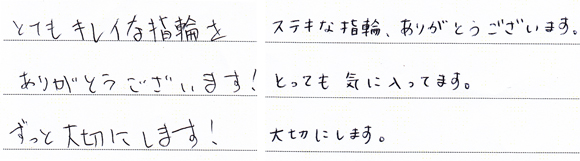 とてもキレイな指輪を
ありがとうございます!
ずっと大切にします!
ステキな指輪、ありがとうございます。
とっても気に入ってます。
大切にします。